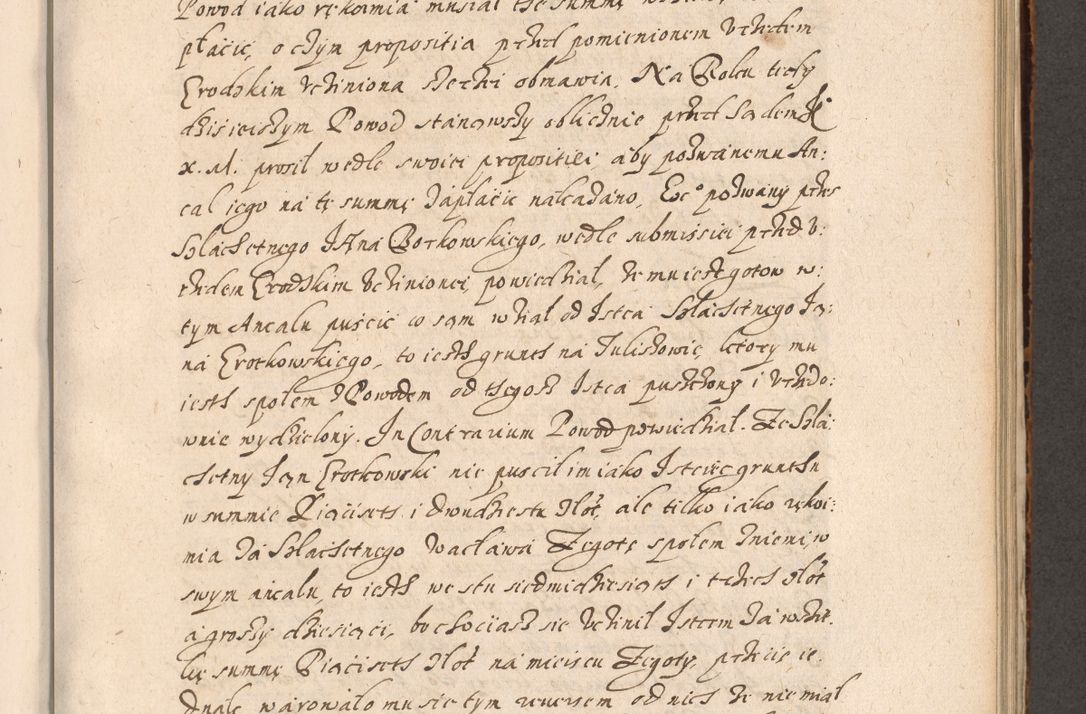 Powod iako rękoimia musiał thę summę
płacic, o czym propositia przed pomienionem Vrzedem
Grodzkim Vcziniona szerzei obmawia. Na Roku tedy
dzisieiszym Powod stanąwszy oblicznie przed Sądem JE
X. M. prosił wedle swoiei propositiei, aby pozwanemu An:
cal iego na tę summę zapłacic nakazano, Ex.o pozwany przes
Szlachetnego JAna Borkowskiego, wedle submissiei przed V:
rzedem Grodzkim Vczinionei powiedział, ze mu iest gotow w:
tym Ancalu puscic co sąm wział od Istca Szlachetnego Ją:
na Grotkowskiego, to iesth grunth na Tulishowie, ktory mu
iesth społem z Powodem od thegosz Istca pusczony i Vrzędo:
wnie wydzielony. In Contrarium Powod powiedział. Ze Szla:
chetny Jąn Grotkowski nie puscił im iako Istciec grunthu
w summie Piąciseth i dwudziestu złot, ale tilko iako rękoi:
mia za Szlachetnego Wacława Zegotę społem z niemi, w
swym ancalu, to iesth we stu siedmidziesiąth i trzech złot
a groszy dziesiąci, bo chociasz sie Vczinił Istcem za wszit:
kę summę Piąciseth złot na mieiscu Zegoty, przecię ie:
dnak warowało mu sie tym reuersem od nich ze nie miał